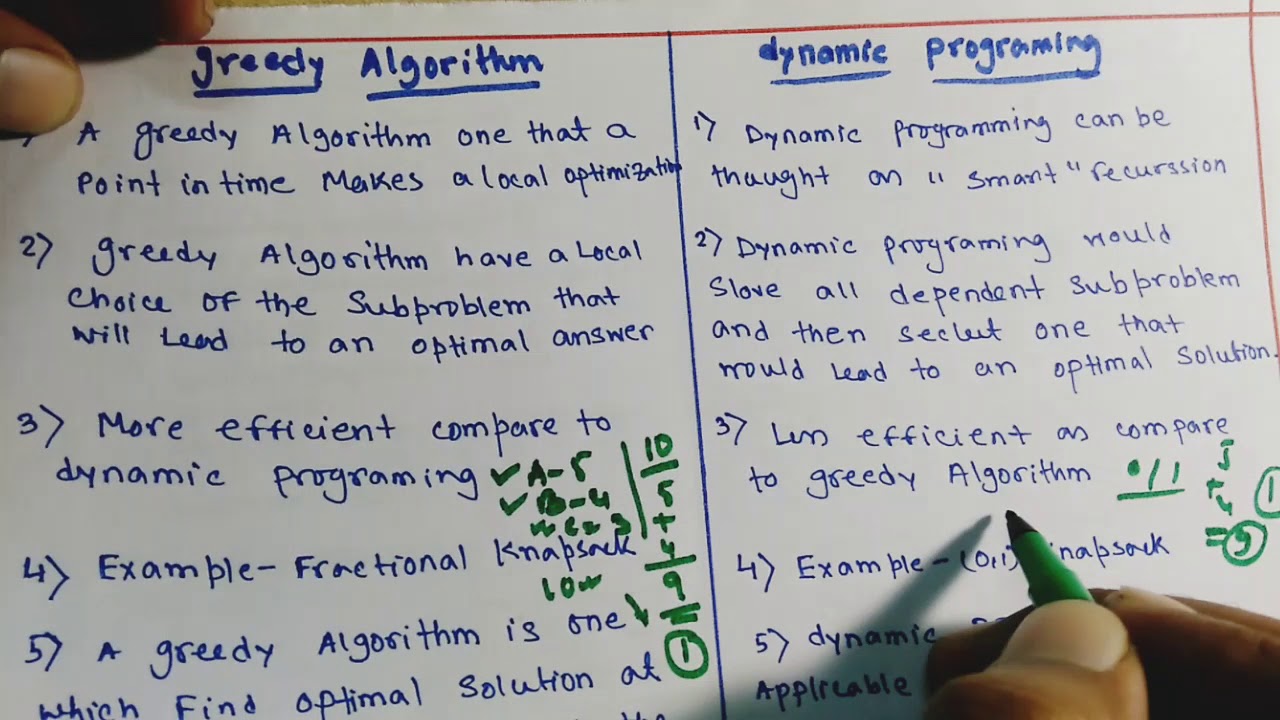 greedy Algorithm
A greedy Algorithm one that a
Point in time Makes a local optimization
2) greedy Algorithm have a Local
Choice OF the Subproblem that
Will Lead to an optimal answer
3) More efficient compare to
dynamic programing
✓ A-5
✓ B-4
C-3
10
5
+
4
9
4) Example- Fractional Knapsack
10w
5) A greedy Algorithm is one
①
which Find optimal Solution at
the
dynamic programing
1) Dynamic programming can be
thaught on "smart" recurssion
2) Dynamic programing would
Slove all dependent subproblem
and then seclut one that
would Lead to an optimal Solution.
3) Less efficient as compare
to greedy Algorithm
0/1
5
+
4
=9
4) Example- (0,1) knapsack
5) dynamic
Applicable